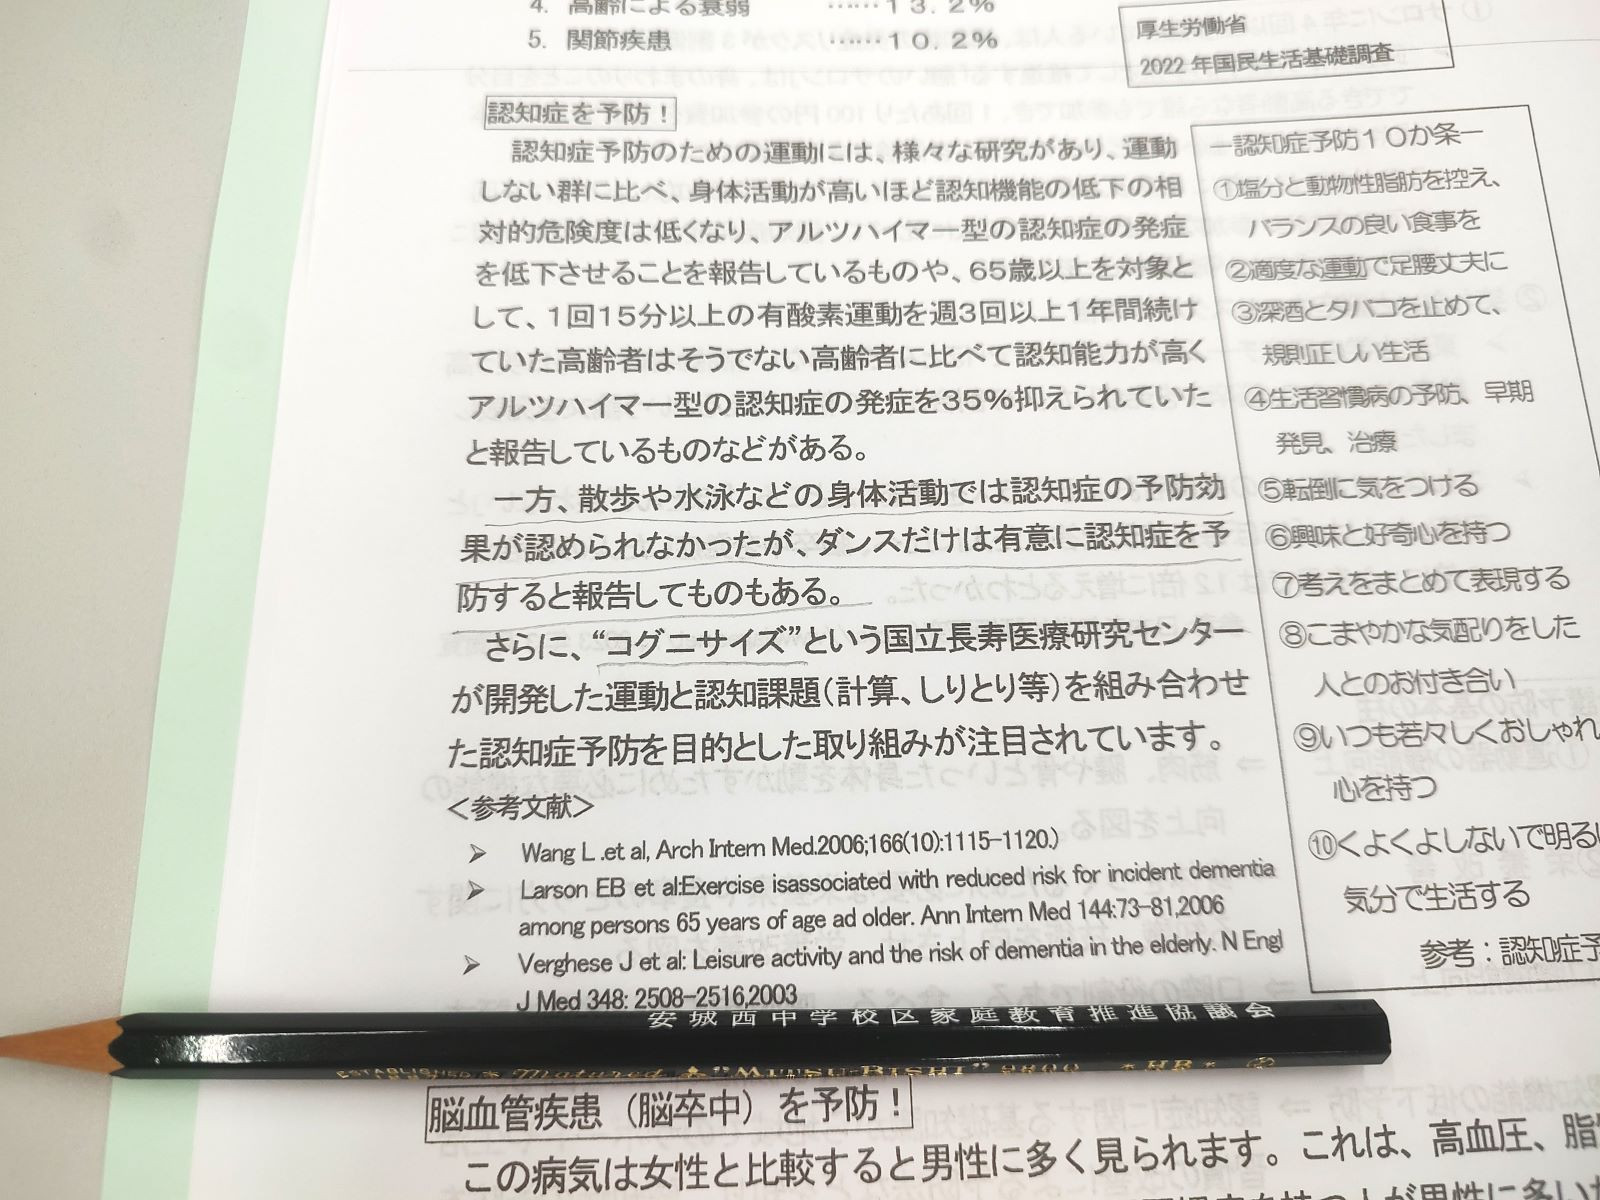 4. 高齢による衰弱 ……13.2%
5. 関節疾患 ……10.2%
厚生労働省
2022年国民生活基礎調査
認知症を予防！
認知症予防のための運動には、様々な研究があり、運動
しない群に比べ、身体活動が高いほど認知機能の低下の相
対的危険度は低くなり、アルツハイマー型の認知症の発症
を低下させることを報告しているものや、65歳以上を対象と
して、1回15分以上の有酸素運動を週3回以上1年間続け
ていた高齢者はそうでない高齢者に比べて認知能力が高く
アルツハイマー型の認知症の発症を35%抑えられていた
と報告しているものなどがある。
一方、散歩や水泳などの身体活動では認知症の予防効
果が認められなかったが、ダンスだけは有意に認知症を予
防すると報告してものもある。
さらに、“コグニサイズ”という国立長寿医療研究センター
が開発した運動と認知課題(計算、しりとり等)を組み合わせ
た認知症予防を目的とした取り組みが注目されています。
<参考文献>
➢ Wang L .et al, Arch Intern Med.2006;166(10):1115-1120.)
➢ Larson EB et al:Exercise isassociated with reduced risk for incident dementia
among persons 65 years of age ad older. Ann Intern Med 144:73-81,2006
➢ Verghese J et al: Leisure activity and the risk of dementia in the elderly. N Engl
J Med 348: 2508-2516,2003
ー認知症予防10か条ー
①塩分と動物性脂肪を控え、
バランスの良い食事を
②適度な運動で足腰丈夫に
③深酒とタバコを止めて、
規則正しい生活
④生活習慣病の予防、早期
発見、治療
⑤転倒に気をつける
⑥興味と好奇心を持つ
⑦考えをまとめて表現する
⑧こまやかな気配りをした
人とのお付き合い
⑨いつも若々しくおしゃれ
心を持つ
⑩くよくよしないで明るい
気分で生活する
参考：認知症予
安城西中学校区家庭教育推進協議会
Matured "MITSU-BISHI" 9800 *HB*
脳血管疾患（脳卒中）を予防！
この病気は女性と比較すると男性に多く見られます。これは、高血圧、脂